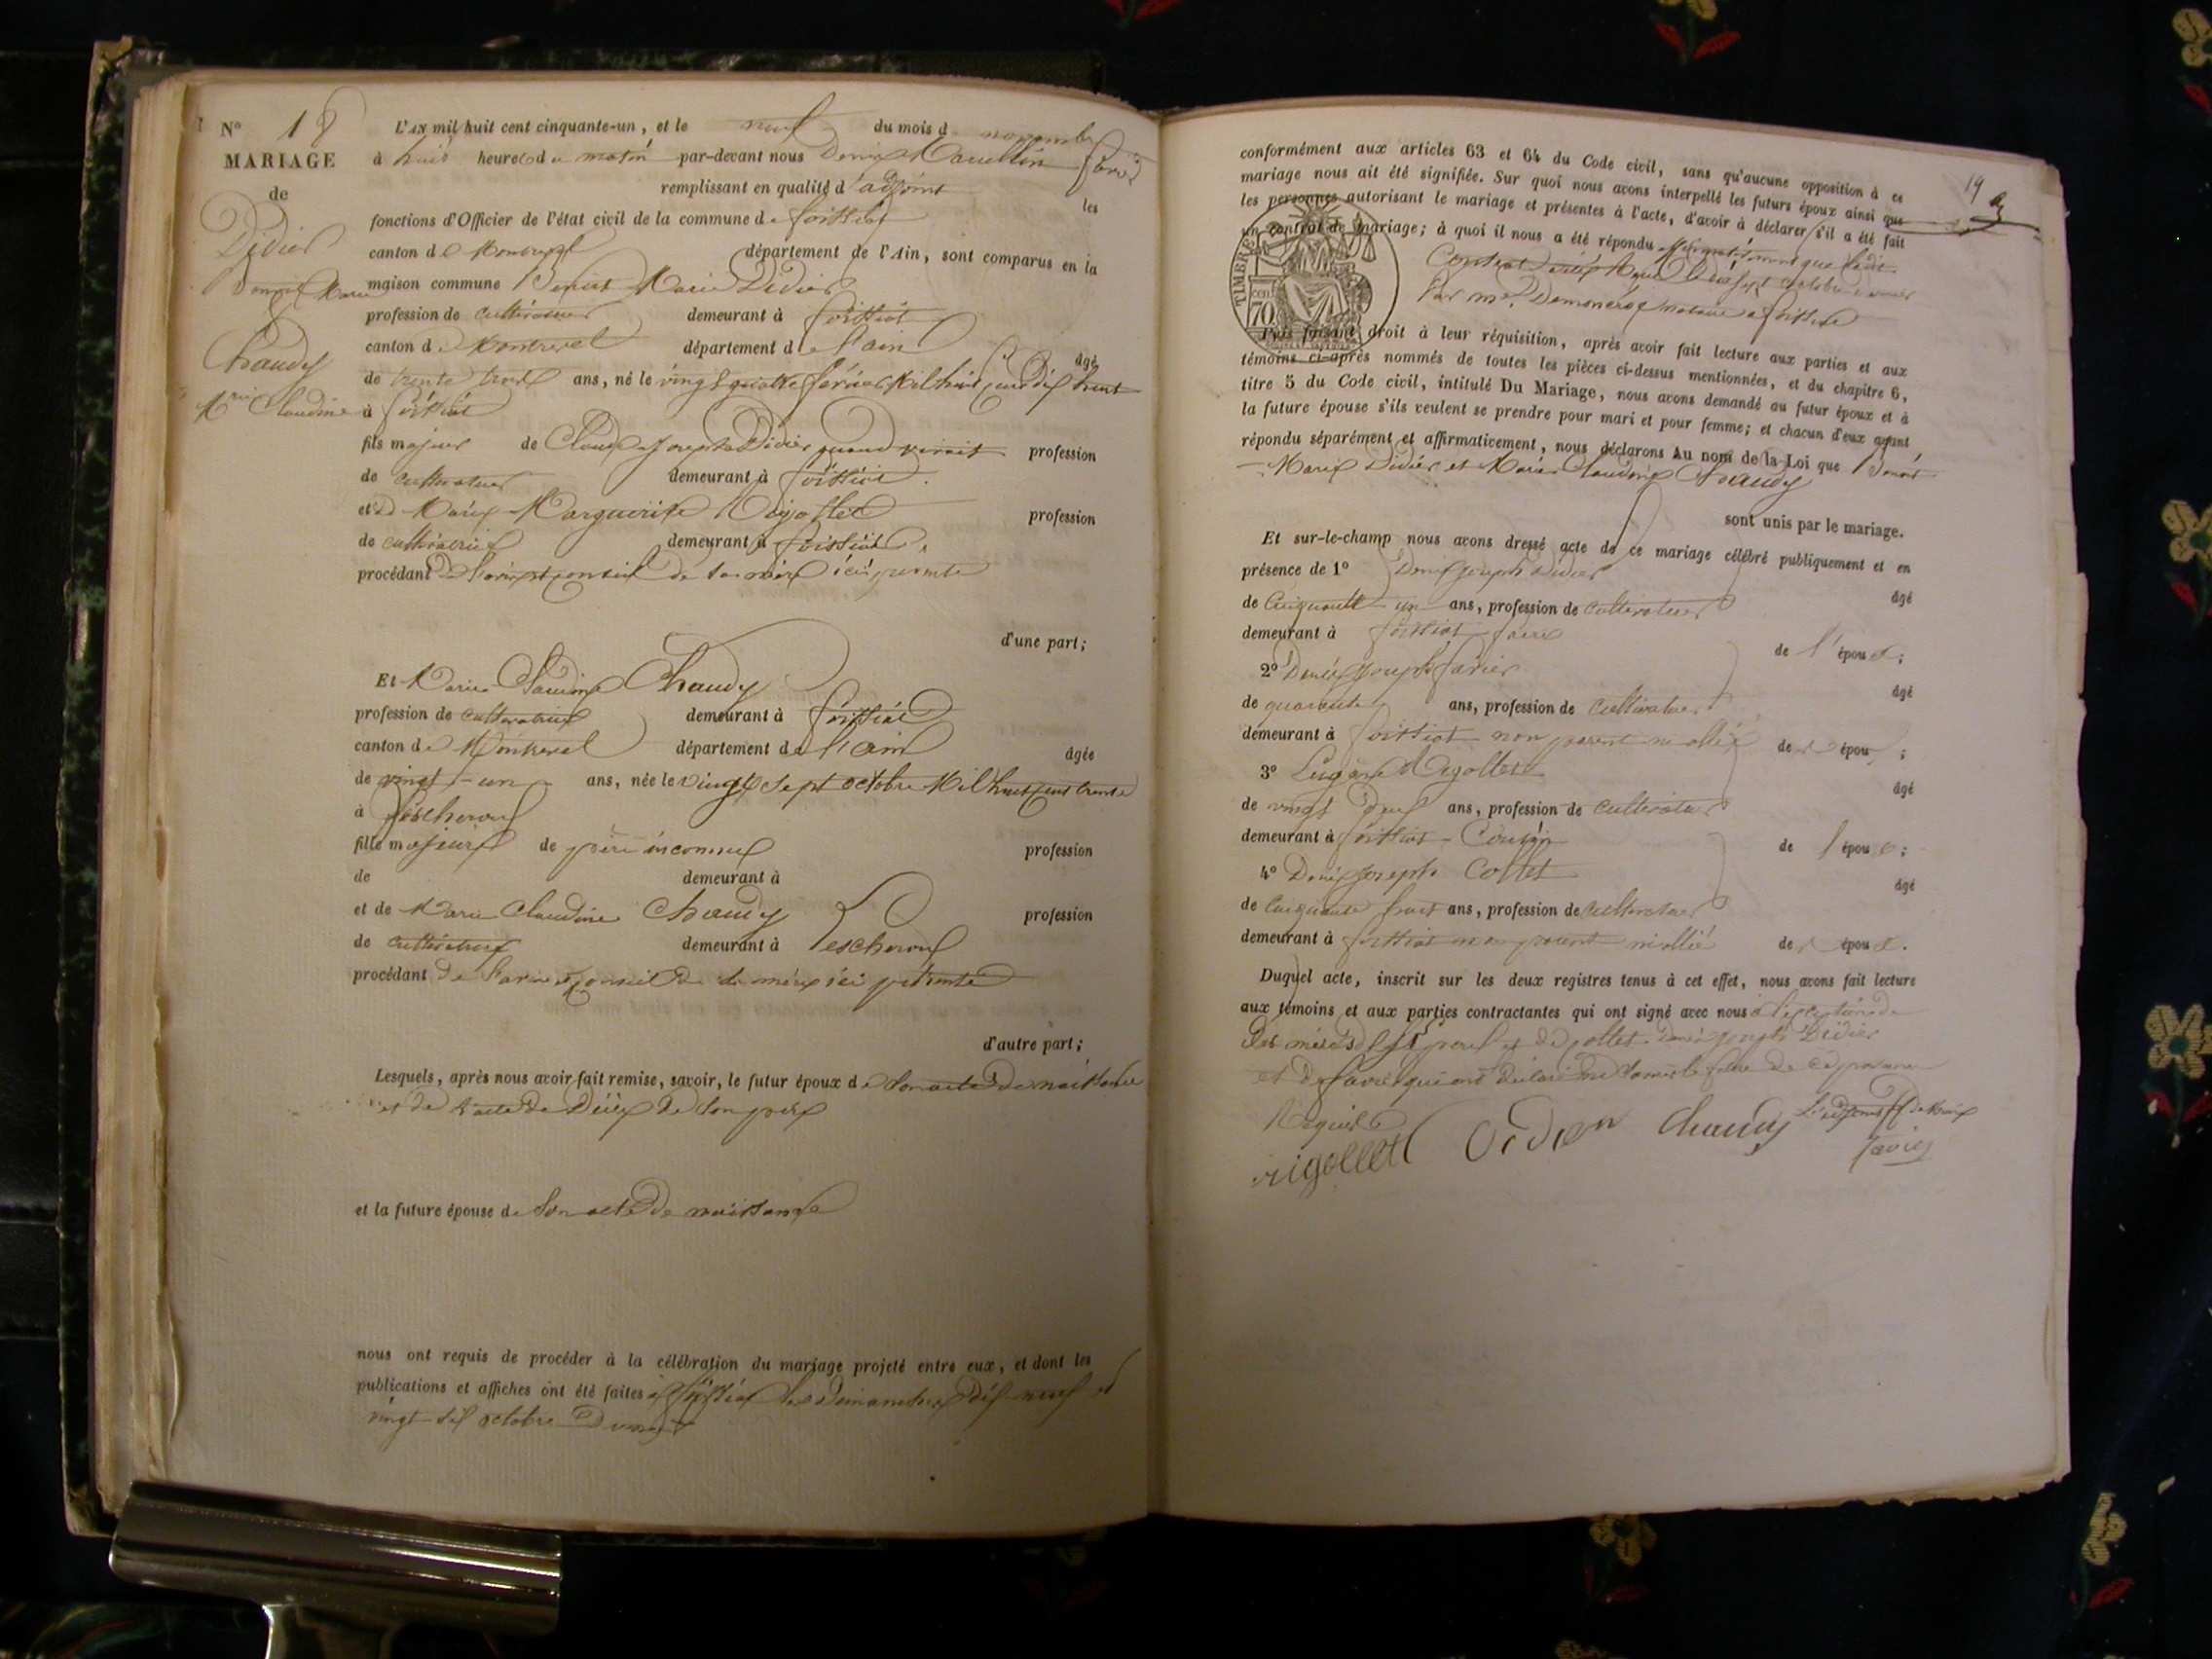 N° 18
MARIAGE
de
Didier
Benoit Marie
&
Chaudy
Mrie Claudine
L'AN mil huit cent cinquante-un, et le neuf du mois d novembre
à huit heures du matin par-devant nous Denis Marcellin favier
remplissant en qualité d'adjoint les
fonctions d'Officier de l'état civil de la commune de foissiat
canton de Montrevel département de l'Ain, sont comparus en la
maison commune Benoit Marie Didier
profession de cultivateur demeurant à foissiat
canton de Montrevel département de l'ain âgé
de trente trois ans, né le vingt quatre février Mil huit cent dix huit
à foissiat
fils majeur de Claude Joseph Didier quand vivait profession
de cultivateur demeurant à foissiat.
et de Marie Marguerite profession
de cultivatrice demeurant à foissiat.
procédant de l'avis et conseil de sa mère ici présente
d'une part;
Et Marie Claudine Chaudy
profession de cultivatrice demeurant à foissiat
canton de Montrevel département de l'ain âgée
de vingt-un ans, née le vingt sept octobre Mil huit cent trente
à Lescheroux
fille majeure de père inconnu profession
de demeurant à
et de Marie Claudine Chaudy profession
de cultivatrice demeurant à Lescheroux
procédant de l'avis et conseil de sa mère ici présente
d'autre part;
Lesquels, après nous avoir fait remise, savoir, le futur époux de son acte de naissance
et de l'acte de Décès de son père
et la future épouse de son acte de naissance
nous ont requis de procéder à la célébration du mariage projeté entre eux, et dont les
publications et affiches ont été faites à foissiat les dimanches dix neuf et
vingt six octobre Dernier
19
conformément aux articles 63 et 64 du Code civil, sans qu'aucune opposition à ce
mariage nous ait été signifiée. Sur quoi nous avons interpellé les futurs époux ainsi que
les personnes autorisant le mariage et présentes à l'acte, d'avoir à déclarer s'il a été fait
un contrat de mariage; à quoi il nous a été répondu affirmativement que ledit
Contrat a été le dix sept octobre dernier
Par me notaire à foissiat
TIMBRE
70
Puis faisant droit à leur réquisition, après avoir fait lecture aux parties et aux
témoins ci-après nommés de toutes les pièces ci-dessus mentionnées, et du chapitre 6,
titre 5 du Code civil, intitulé Du Mariage, nous avons demandé au futur époux et à
la future épouse s'ils veulent se prendre pour mari et pour femme; et chacun d'eux ayant
répondu séparément et affirmativement, nous déclarons Au nom de la Loi que Benoit
Marie Didier et Marie Claudine Chaudy
sont unis par le mariage.
Et sur-le-champ nous avons dressé acte de ce mariage célébré publiquement et en
présence de 1° Denis Joseph Didier âgé
de Cinquante un ans, profession de cultivateur
demeurant à foissiat frère de l'époux;
2° Denis Joseph favier âgé
de quarante ans, profession de cultivateur
demeurant à foissiat non parent ni allié de époux;
3° Eugène Rigollet âgé
de vingt deux ans, profession de cultivateur
demeurant à foissiat - Cousin de l'époux;
4° Denis Joseph Collet âgé
de Cinquante huit ans, profession de cultivateur
demeurant à foissiat non parent ni allié de époux.
Duquel acte, inscrit sur les deux registres tenus à cet effet, nous avons fait lecture
aux témoins et aux parties contractantes qui ont signé avec nous à l'exception de
des mères des époux et de collet Denis joseph Didier
et de favier qui ont déclaré ne savoir le faire de ce
Requis
rigollet Didier Chaudy L'adjoint
favier